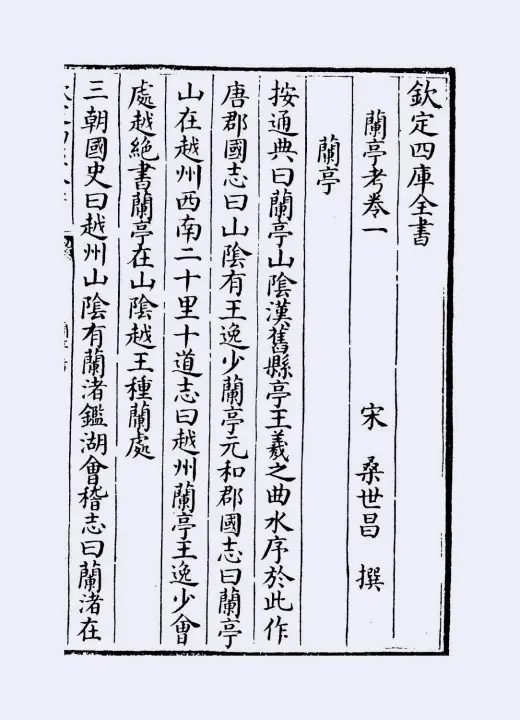 欽定四庫全書
蘭亭考卷一
宋 桑世昌 撰
蘭亭
按通典曰蘭亭山陰漢舊縣亭王羲之曲水序於此作
唐郡國志曰山陰有王逸少蘭亭元和郡國志曰蘭亭
山在越州西南二十里十道志曰越州蘭亭王逸少會
處越絶書蘭亭在山陰越王種蘭處
三朝國史曰越州山陰有蘭渚鑑湖會稽志曰蘭渚在